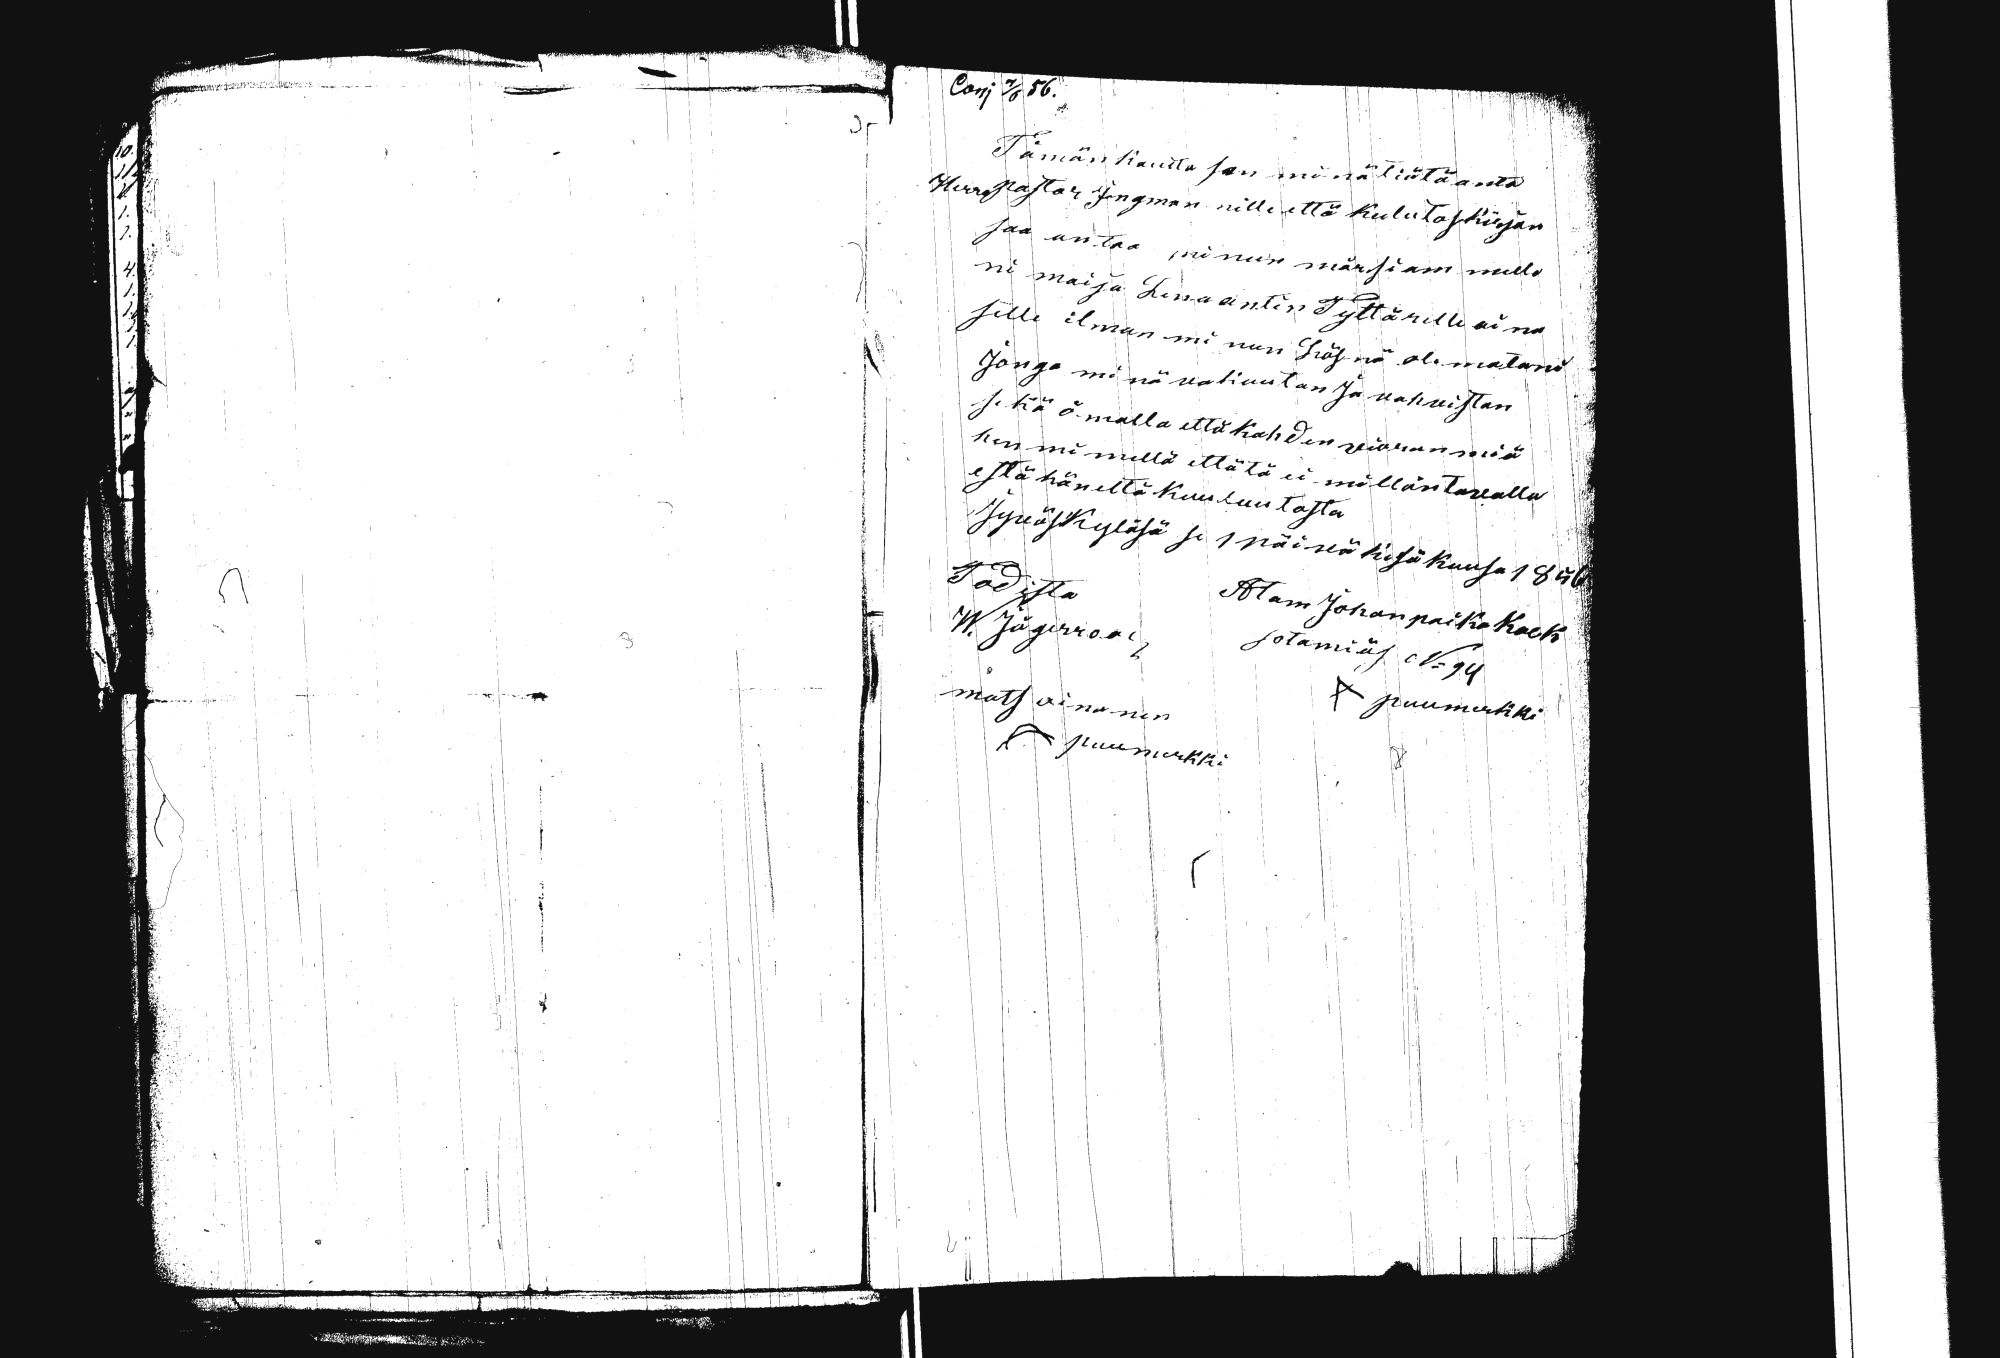 10.
11.
1.
1.
4.
1.
1.
1.
1.
Conj 7/6 56.
Tämän kautta san minä tiätä anta
Herra Pastor Jngman nille että kulutos kirjan
saa antaa minun märsiam mulle
ni maija Lena antin Tyttärelle aina
selle ilman mi nun Läsnä olematani
Jonga mi nä vakuutan Ja vahvistan
se kä omalla että kahden vioran miä
hen mi mellä että tä ei millän tavalla
estä häneltä kuulutosta
Jyväs Kyläsä se 1 päivä kesä kuusa 1856
Todista
Atam Johan paika Kack
W. Jägerroos
sotamiäs No 94
puumerkki
mats ainonen
puumerkki